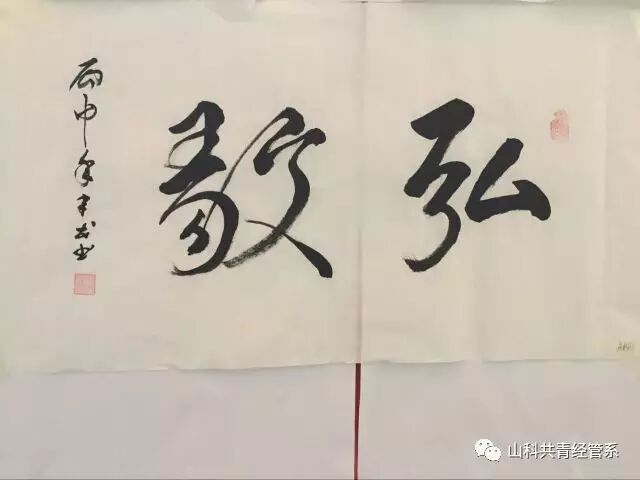 弘毅
丙申年
山科共青经管系